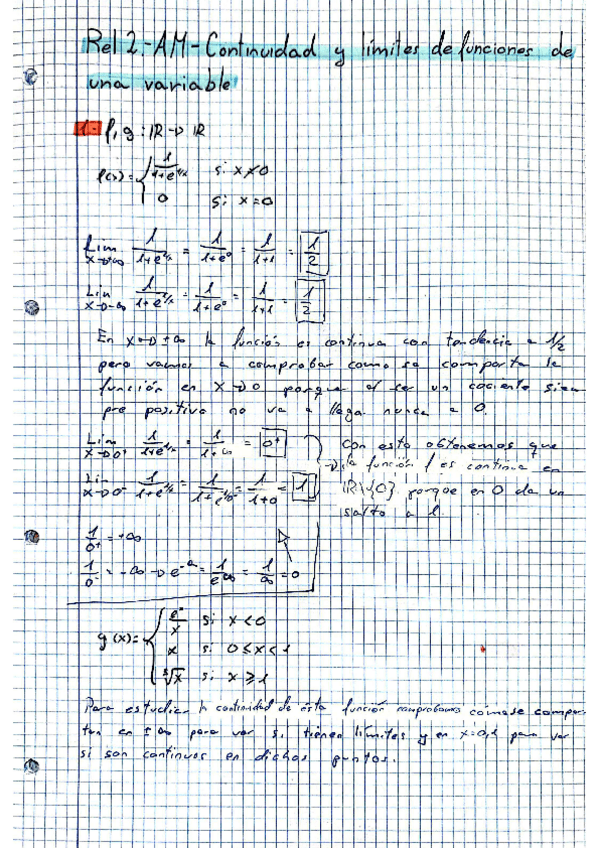 Rel 2.-AM-Continuidad y límites de funciones de
una variable
1.- f, g : ℝ → ℝ
f(x) = { 1/(1+e^(1/x)) si x≠0
0 si x=0
Lim x→+∞ 1/(1+e^(1/x)) = 1/(1+e^0) = 1/(1+1) = 1/2
Lim x→-∞ 1/(1+e^(1/x)) = 1/(1+e^0) = 1/(1+1) = 1/2
En x→±∞ la función es continua con tendencia a 1/2
pero vamos a comprobar como se comporta la
función en x→0 porque al ser un cociente siem
pre positivo no va a llega nunca a 0.
Lim x→0+ 1/(1+e^(1/x)) = 1/(1+∞) = 0+
Lim x→0- 1/(1+e^(1/x)) = 1/(1+e^(1/0-)) = 1/(1+0) = 1
→ Con esto obtenemos que
la función f es continua en
ℝ\{0} porque en 0 da un
salto a 1.
1/0+ = +∞
1/0- = -∞ → e^-∞ = 1/e^∞ = 1/∞ = 0
g(x) = { e^x/x si x<0
x si 0≤x<1
si x≥1
Para estudiar la continuidad de esta función comprobamos cómo se compor
tan en ±∞ para ver si tienen límites y en x=0,1 para ver
si son continuos en dichos puntos.